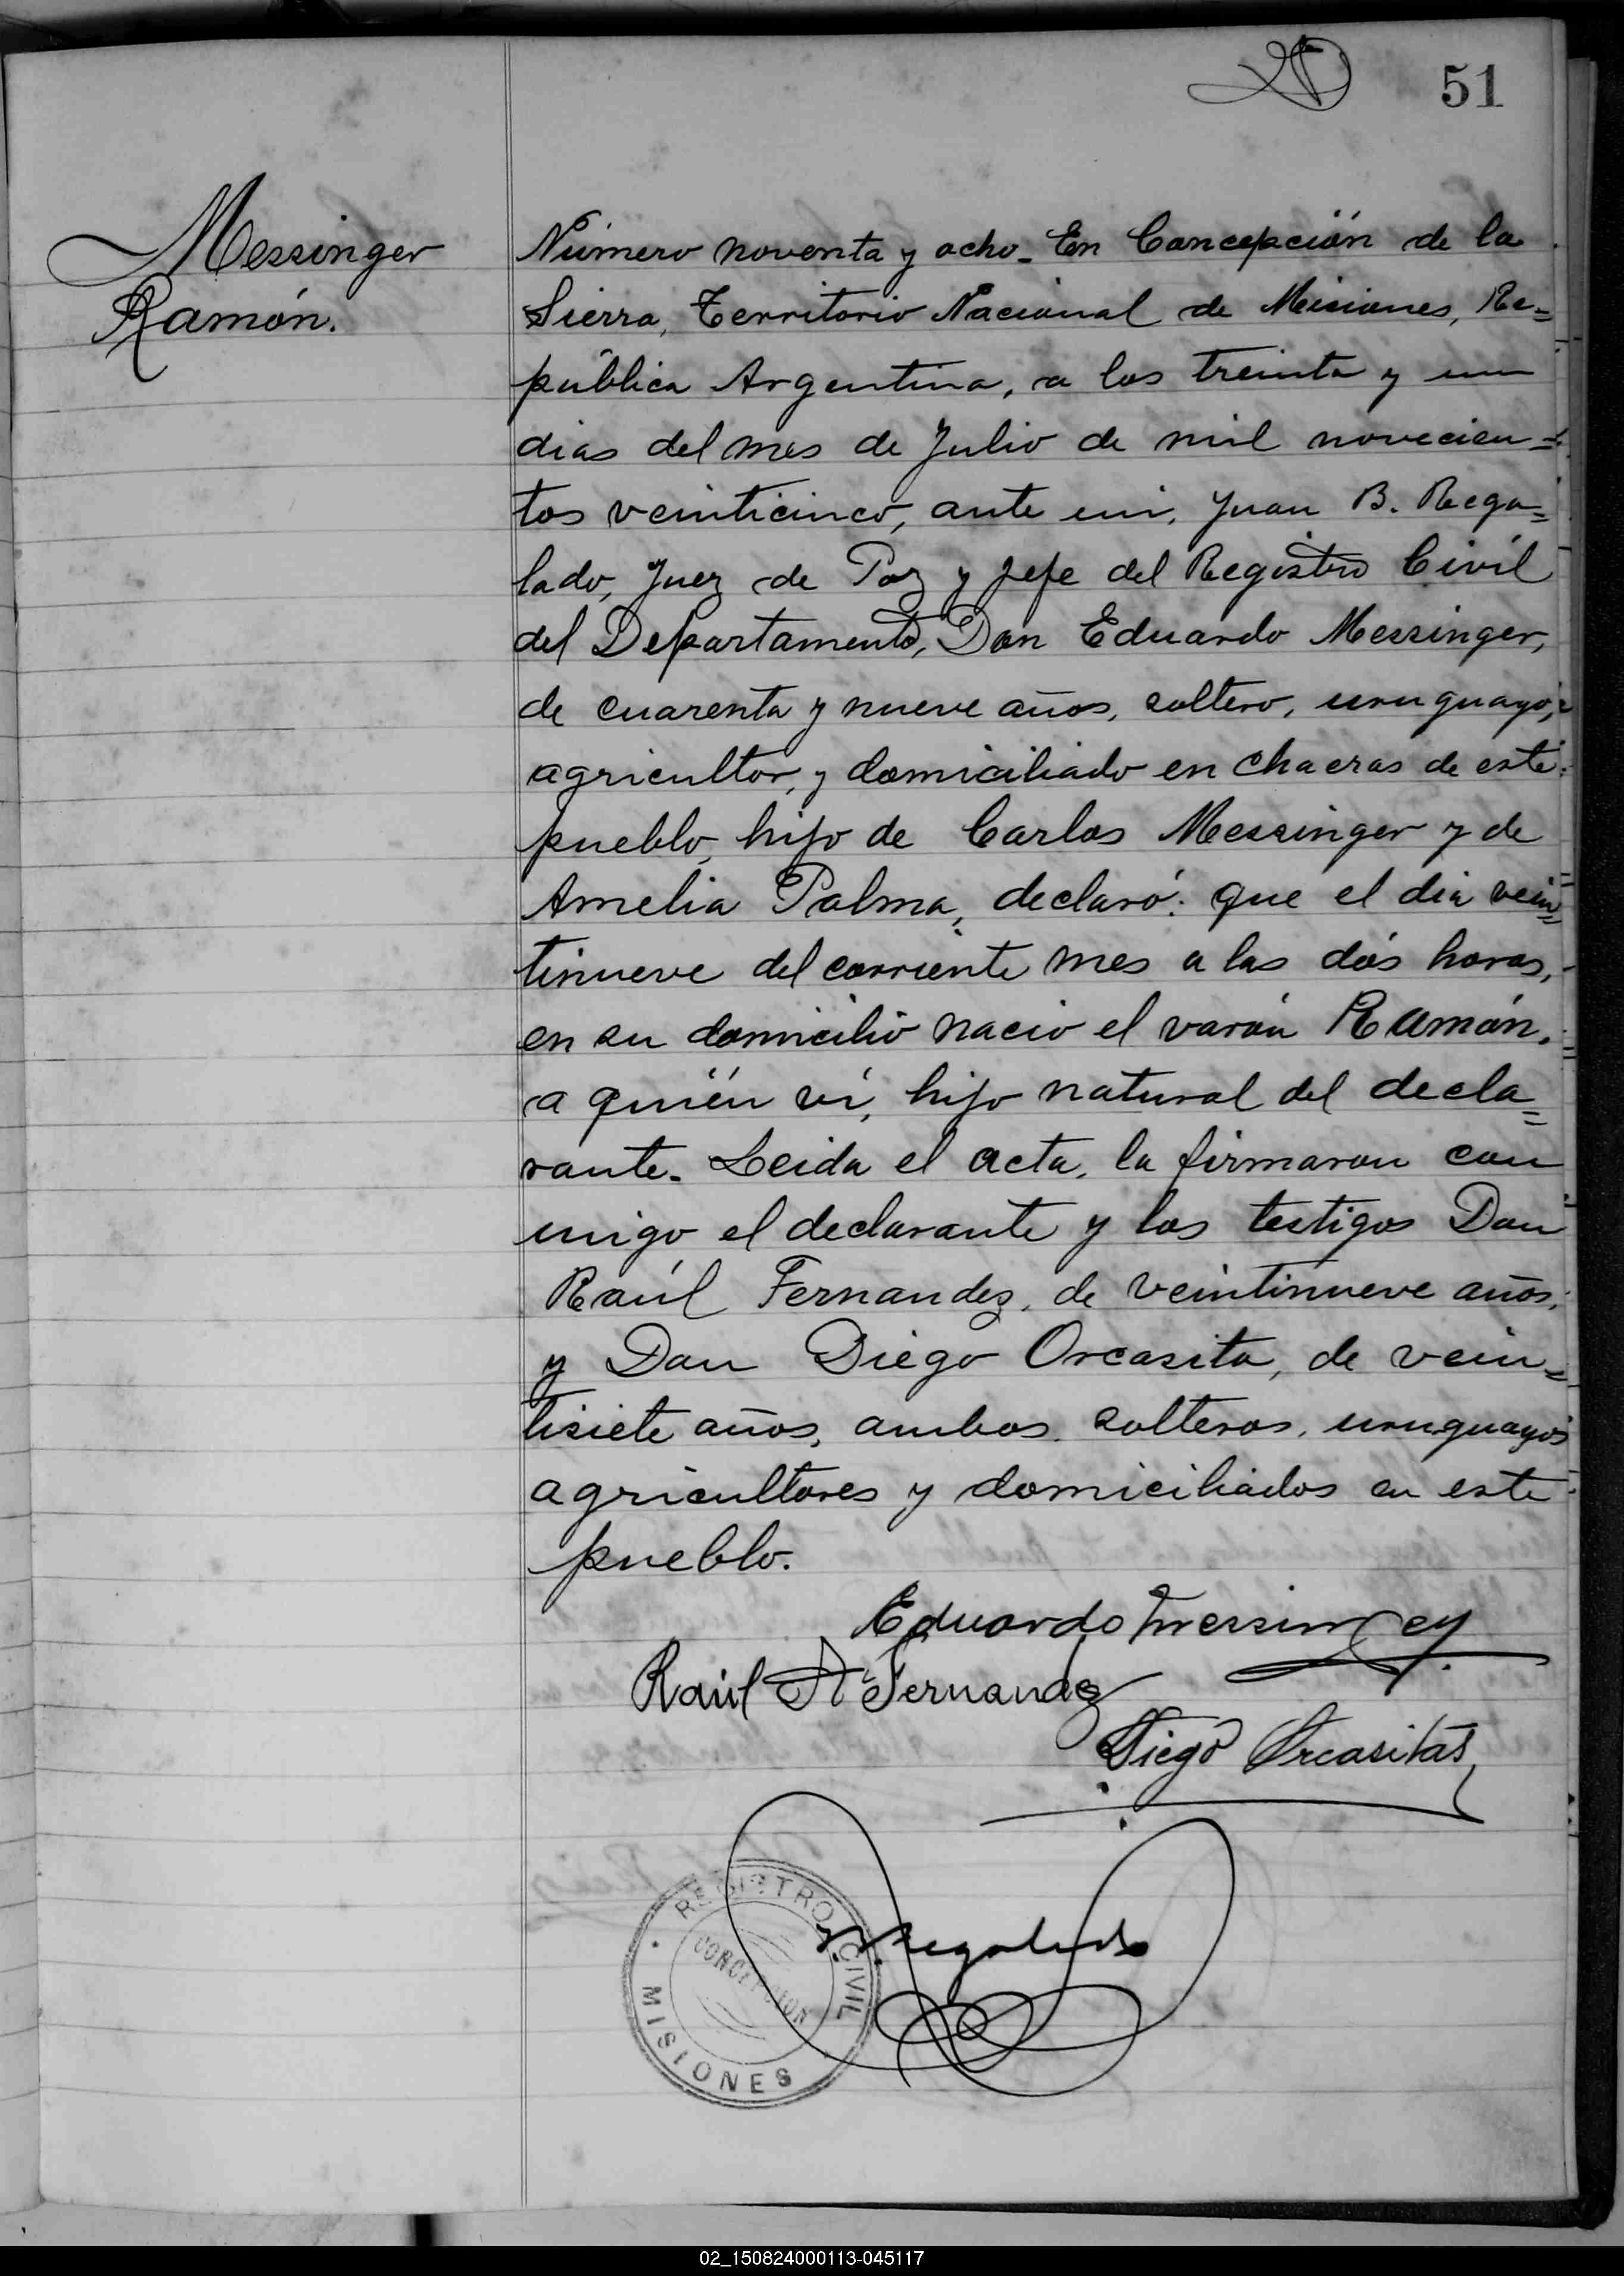 51
Messinger
Ramón.
Número noventa y ocho. En Concepción de la
Sierra, Territorio Nacional de Misiones, Re=
pública Argentina, a los treinta y un
dias del mes de Julio de mil novecien=
tos veinticinco, ante mi, Juan B. Rega=
lado, Juez de Paz y Jefe del Registro Civíl
del Departamento, Don Eduardo Messinger,
de cuarenta y nueve años, soltero, uruguayo,
agricultor, y domiciliado en chacras de este
pueblo, hijo de Carlos Messinger y de
Amelia Palma, declaró: que el dia vein=
tinueve del corriente mes a las dos horas,
en su domicilio nació el varón Ramón,
a quién ví, hijo natural del decla=
rante. Leida el acta, la firmaron con
migo el declarante y los testigos Don
Raúl Fernandez, de veintinueve años,
y Don Diego Orcasita, de vein=
tisiete años, ambos solteros, uruguayos
agricultores y domiciliados en este
pueblo.
Eduardo Messinger
Raúl A Fernandez
Diego Orcasitas
Regalado
REGISTRO CIVIL
CONCEPCION
MISIONES
02_150824000113-045117